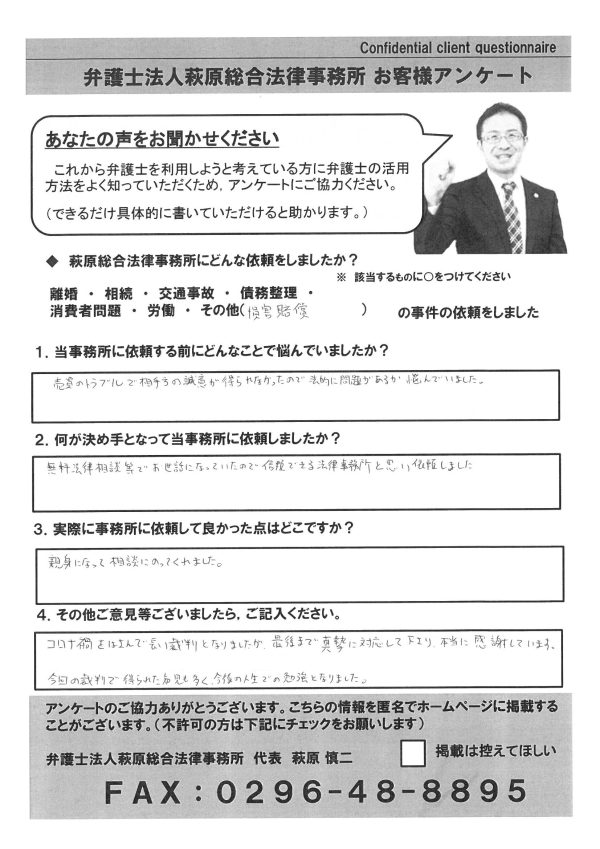 Confidential client questionnaire
弁護士法人萩原総合法律事務所 お客様アンケート
あなたの声をお聞かせください
これから弁護士を利用しようと考えている方に弁護士の活用
方法をよく知っていただくため，アンケートにご協力ください。
（できるだけ具体的に書いていただけると助かります。）
◆ 萩原総合法律事務所にどんな依頼をしましたか？
※ 該当するものに○をつけてください
離婚 ・ 相続 ・ 交通事故 ・ 債務整理 ・
消費者問題 ・ 労働 ・ その他（損害賠償　　　）　の事件の依頼をしました
１．当事務所に依頼する前にどんなことで悩んでいましたか？
売買のトラブルで相手方の誠意が得られなかったので法的に問題があるか悩んでいました。
２．何が決め手となって当事務所に依頼しましたか？
無料法律相談等でお世話になっていたので信頼できる法律事務所と思い依頼しました
３．実際に事務所に依頼して良かった点はどこですか？
親身になって相談にのってくれました。
４．その他ご意見等ございましたら，ご記入ください。
コロナ禍をはさんで長い裁判となりましたが、最後まで真摯に対応して下さり、本当に感謝しています。
今回の裁判で得られた知見も多く、今後の人生での勉強となりました。
アンケートのご協力ありがとうございます。こちらの情報を匿名でホームページに掲載する
ことがございます。（不許可の方は下記にチェックをお願いします）
弁護士法人萩原総合法律事務所 代表 萩原 慎二　□ 掲載は控えてほしい
ＦＡＸ：０２９６－４８－８８９５